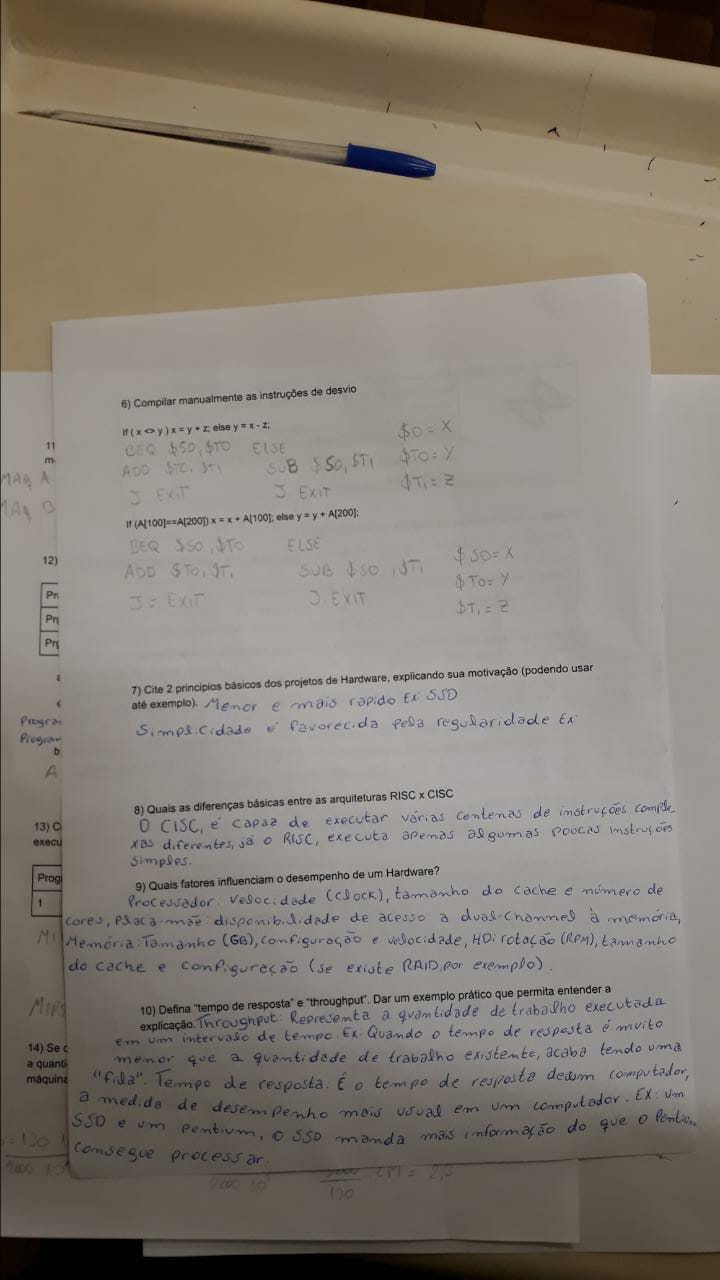 6) Compilar manualmente as instruções de desvio
If ( x <> y ) x = y + z; else y = x - z;
BEQ $S0, $T0 ELSE
ADD $T0, $T1 SUB $S0, $T1
J EXIT J EXIT
$0 = X
$T0 = Y
$T1 = Z
If (A[100]==A[200]) x = x + A[100]; else y = y + A[200];
BEQ $S0, $T0 ELSE
ADD $T0, $T1 SUB $S0, $T1
J = EXIT J. EXIT
$S0 = X
$T0 = Y
$T1 = Z
7) Cite 2 princípios básicos dos projetos de Hardware, explicando sua motivação (podendo usar
até exemplo). Menor e mais rapido Ex: SSD
Simplicidade é favorecida pela regularidade Ex:
8) Quais as diferenças básicas entre as arquiteturas RISC x CISC
O CISC, é capaz de executar várias centenas de instruções comple
xas diferentes, já o RISC, executa apenas algumas poucas instruções
simples.
9) Quais fatores influenciam o desempenho de um Hardware?
Processador: velocidade (clock), tamanho do cache e número de
cores, Placa-mãe: disponibilidade de acesso a dual-channel à memória,
Memória: Tamanho (GB), configuração e velocidade, HD: rotação (RPM), tamanho
do cache e configuração (se existe RAID, por exemplo).
10) Defina "tempo de resposta" e "throughput". Dar um exemplo prático que permita entender a
explicação. Throughput: Representa a quantidade de trabalho executada
em um intervalo de tempo. Ex: Quando o tempo de resposta é muito
menor que a quantidade de trabalho existente, acaba tendo uma
"fila". Tempo de resposta: É o tempo de resposta computador,
a medida de desempenho mais usual em um computador. EX: um
SSD e um pentium, o SSD manda mais informação do que o Pentium
consegue processar.
11
m
MAQ A
MAQ B
12)
Pr
Pr
Pr
Program
Program
b
A
13) C
execu
Prog
1
MI
MIPS
14) Se
a quant
máquina
= 130
2000 10
2000 10
130
= 2,3